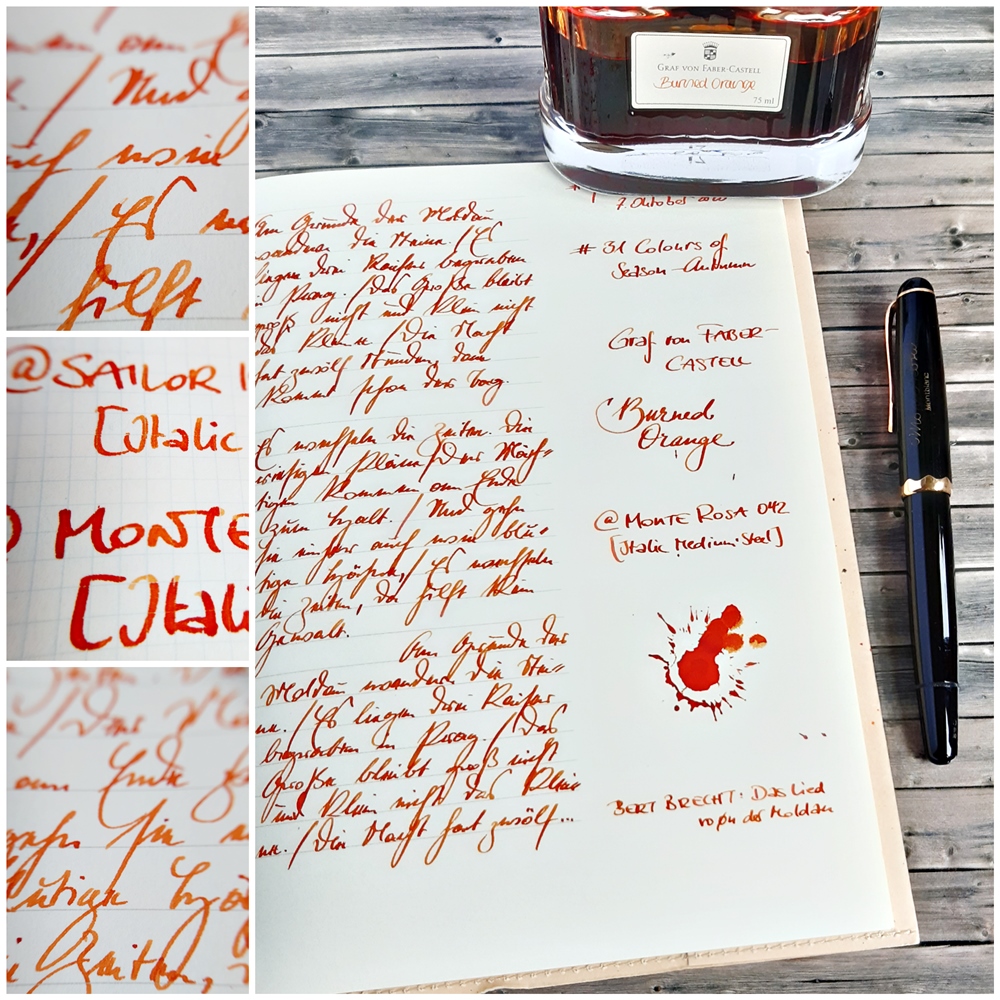 Und
auch wie
/ Es we
hilft
@ SAILOR
[Italic
MONTE
[Itali
/ Der Mä
am Ende
gehn sie
lutige Häh
Zeiten,
GRAF VON FABER-CASTELL
Burned Orange
75 ml
Am Grunde der Moldau
wandern die Steine / Es
liegen drei Kaiser begraben
in Prag. / Das Große bleibt
groß nicht und klein nicht
das Kleine / Die Nacht
hat zwölf Stunden, dann
kommt schon der Tag.
Es wechseln die Zeiten. Die
riesigen Pläne / Der Mäch=
tigen kommen am Ende
zum Halt. / Und gehn
sie einher auch wie blu=
tige Hähne, / Es wechseln
die Zeiten, da hilft kein
Gewalt.
Am Grunde der
Moldau wandern die Stei=
ne. / Es liegen drei Kaiser
begraben in Prag. / Das
Große bleibt groß nicht
und klein nicht das Klei=
ne. / Die Nacht hat zwölf...
7. Oktober
# 31 Colours of
Season Autumn
Graf von FABER-
CASTELL
Burned
Orange
@ MONTE ROSA 042
[Italic Medium·Steel]
BERT BRECHT: Das Lied
von der Moldau